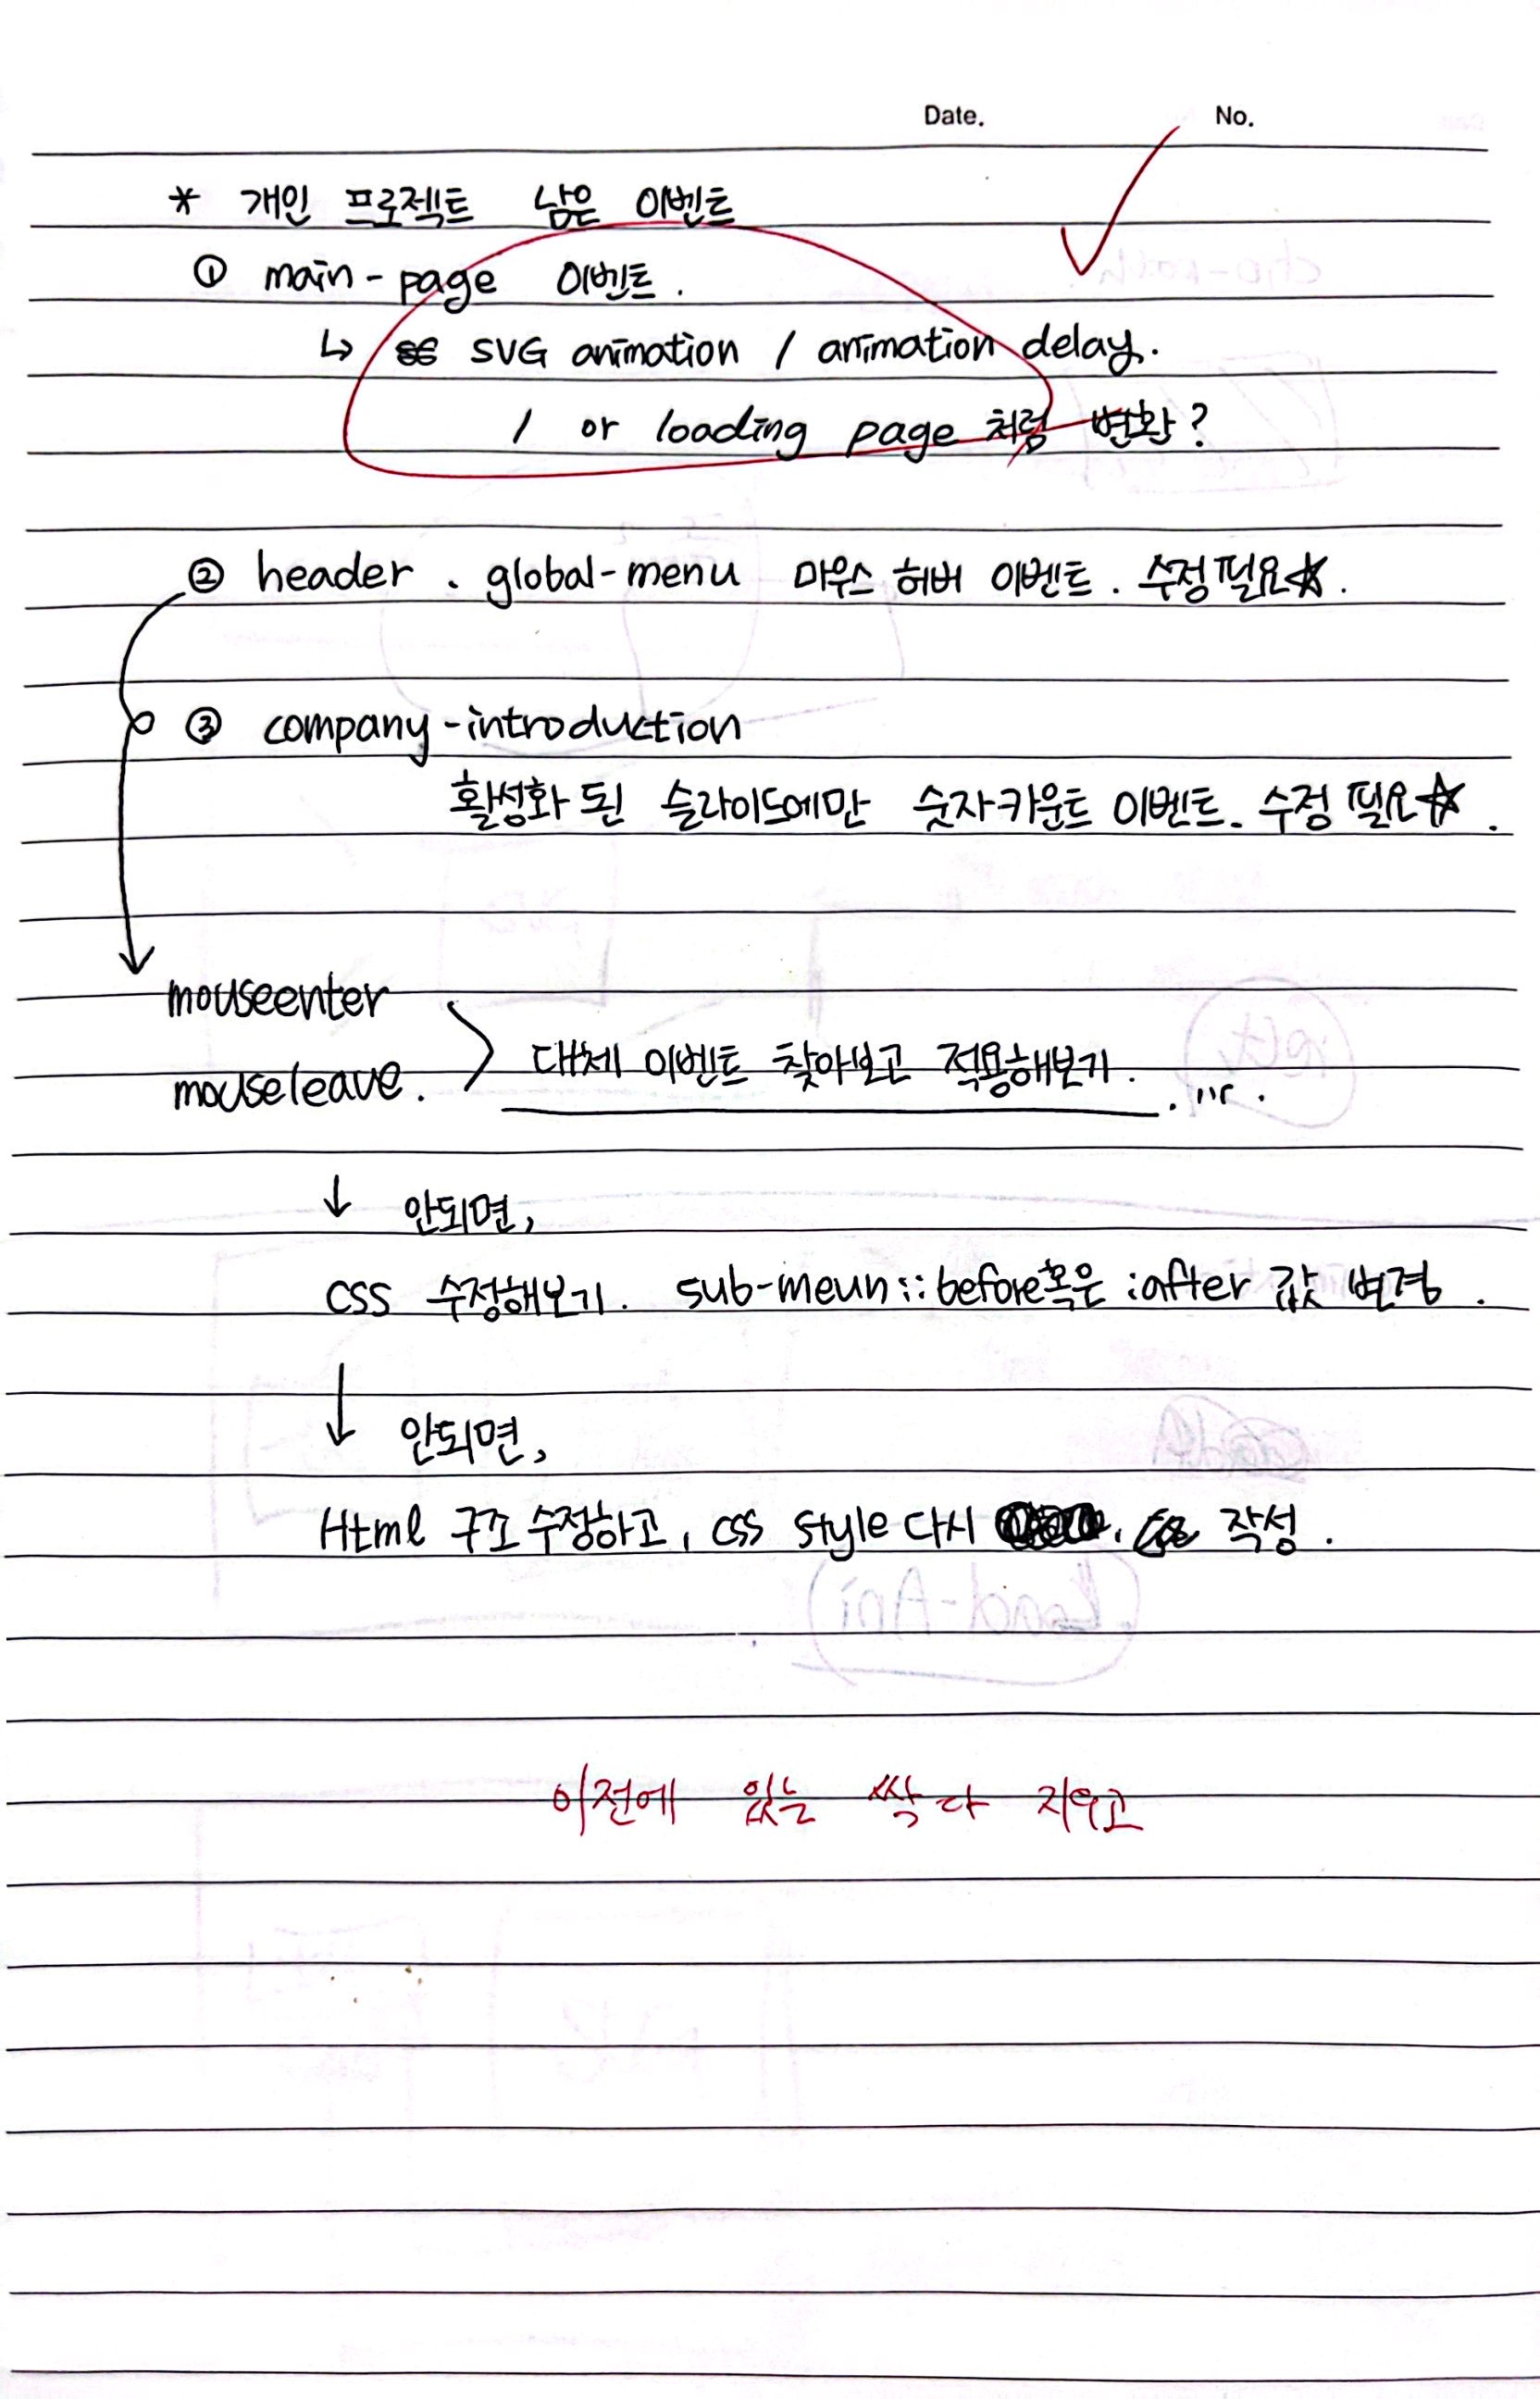 Date. No.
* 개인 프로젝트 남은 이벤트
① main-page 이벤트.
↳ SVG animation / animation delay.
/ or loading page 처럼 변환?
② header . global-menu 마우스 허버 이벤트. 수정필요☆.
③ company-introduction
활성화 된 슬라이드에만 숫자카운트 이벤트. 수정 필요☆.
mouseenter
mouseleave. > 대체 이벤트 찾아보고 적용해보기.
↓ 안되면,
CSS 수정해보기. sub-meun::before혹은 :after 값 변경.
↓ 안되면,
Html 구조 수정하고, css style 다시 작성.
이전에 있는 싹 다 지우고